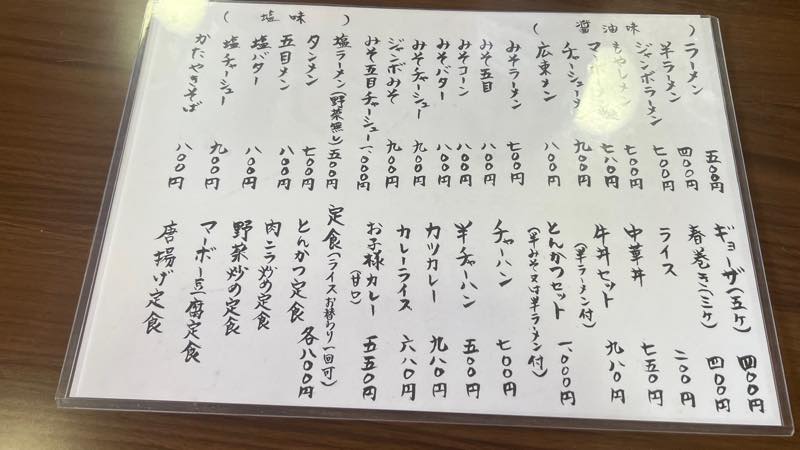 (醤油味)
ラーメン 五〇〇円
半ラーメン 四〇〇円
ジャンボラーメン 七〇〇円
もやしメン 七〇〇円
七八〇円
チャーシューメン 九〇〇円
広東メン 八〇〇円
みそラーメン 七〇〇円
みそ五目 八〇〇円
みそコーン 八〇〇円
みそバター 八〇〇円
みそチャーシュー 九〇〇円
ジャンボみそ 九〇〇円
みそ五目チャーシュー 一、〇〇〇円
(塩味)
塩ラーメン(野菜無し) 五〇〇円
タンメン 七〇〇円
五目メン 八〇〇円
塩バター 八〇〇円
塩チャーシュー 九〇〇円
かたやきそば 八〇〇円
ギョーザ(五ケ) 四〇〇円
春巻き(三ケ) 四〇〇円
ライス 二〇〇円
中華丼 七五〇円
牛丼セット 九八〇円
(半ラーメン付)
とんかつセット 一、〇〇〇円
(半みそ又は半ラーメン付)
チャーハン 七〇〇円
半チャーハン 五〇〇円
カツカレー 九八〇円
カレーライス 六八〇円
お子様カレー(甘口) 五五〇円
定食(ライスお替わり一回可)
とんかつ定食 各八〇〇円
肉ニラ炒め定食
野菜炒め定食
マーボー豆腐定食
唐揚げ定食